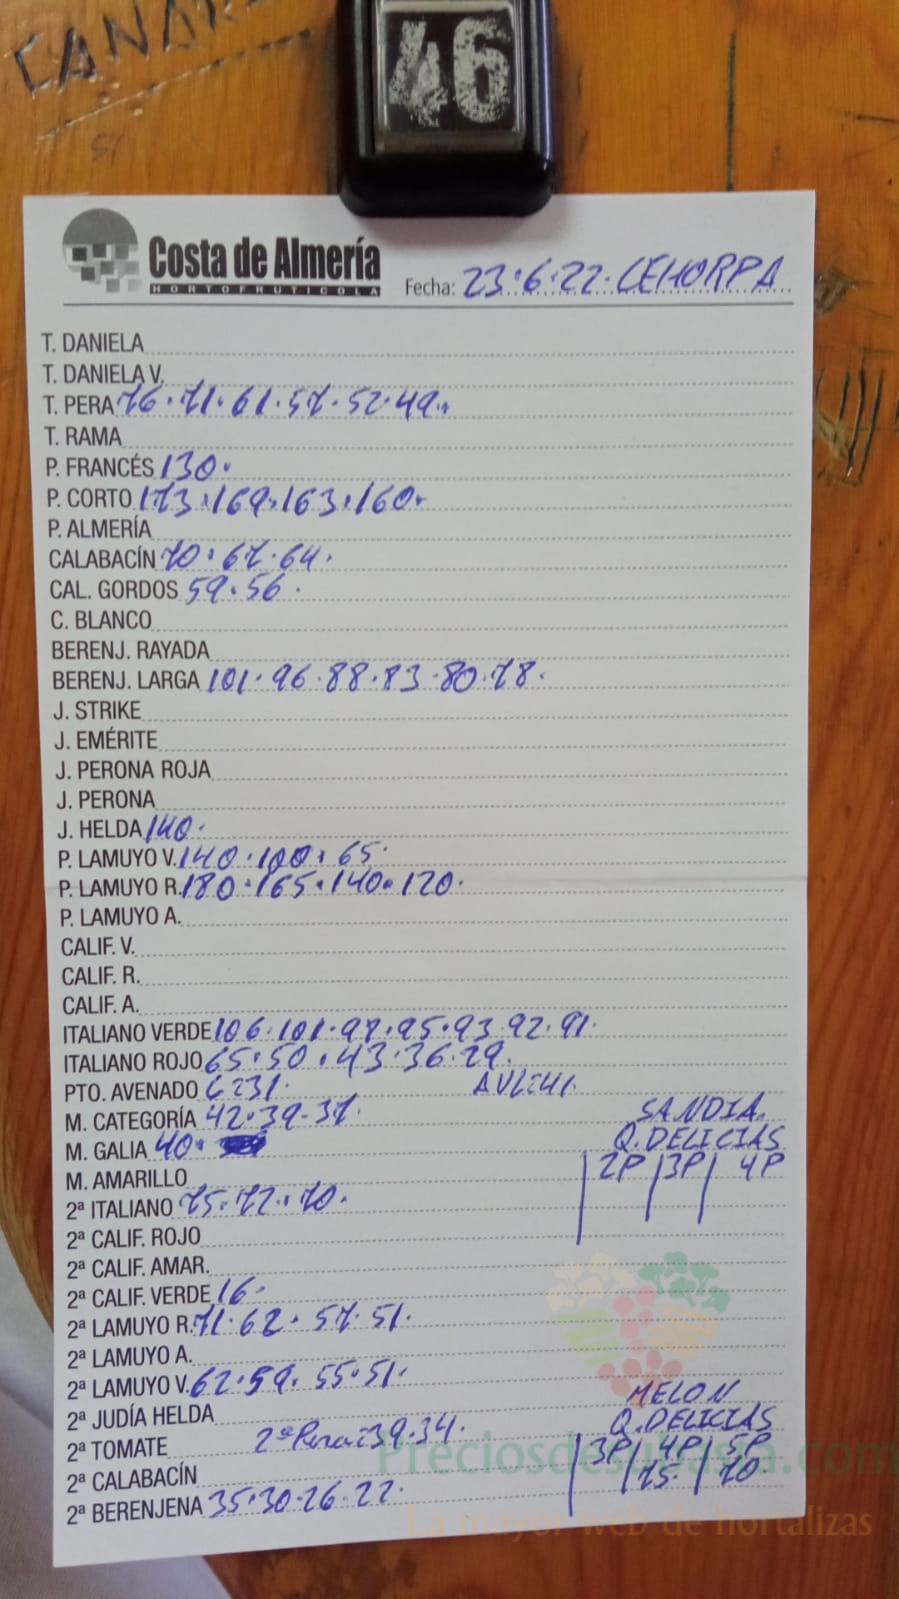 CANA
46
Costa de Almería
HORTOFRUTICOLA
Fecha: 23.6.22. CEHORPA
T. DANIELA
T. DANIELA V.
T. PERA 76.71.61.57.52.49.
T. RAMA
P. FRANCÉS 130.
P. CORTO 173.169.163.160.
P. ALMERÍA
CALABACÍN 70.67.64.
CAL. GORDOS 59.56.
C. BLANCO
BERENJ. RAYADA
BERENJ. LARGA 101.96.88.83.80.78.
J. STRIKE
J. EMÉRITE
J. PERONA ROJA
J. PERONA
J. HELDA 140.
P. LAMUYO V. 140.100.65.
P. LAMUYO R. 180.165.140.120.
P. LAMUYO A.
CALIF. V.
CALIF. R.
CALIF. A.
ITALIANO VERDE 106.101.97.95.93.92.91.
ITALIANO ROJO 65.50.43.36.29.
PTO. AVENADO
M. CATEGORÍA 42.39.37.
SANDIA
M. GALIA 40.
Q. DELICIAS
M. AMARILLO
2P 3P 4P
2ª ITALIANO 75.72.70.
2ª CALIF. ROJO
2ª CALIF. AMAR.
2ª CALIF. VERDE 16.
2ª LAMUYO R. 71.62.57.51.
2ª LAMUYO A.
2ª LAMUYO V. 62.59.55.51.
MELON
2ª JUDÍA HELDA
Q. DELICIAS
2ª TOMATE 2ª Pera: 39.34.
3P 4P 5P
2ª CALABACÍN
75. 70
2ª BERENJENA 35.30.26.22.
Preciosdesubasta.com
La mayor web de hortalizas